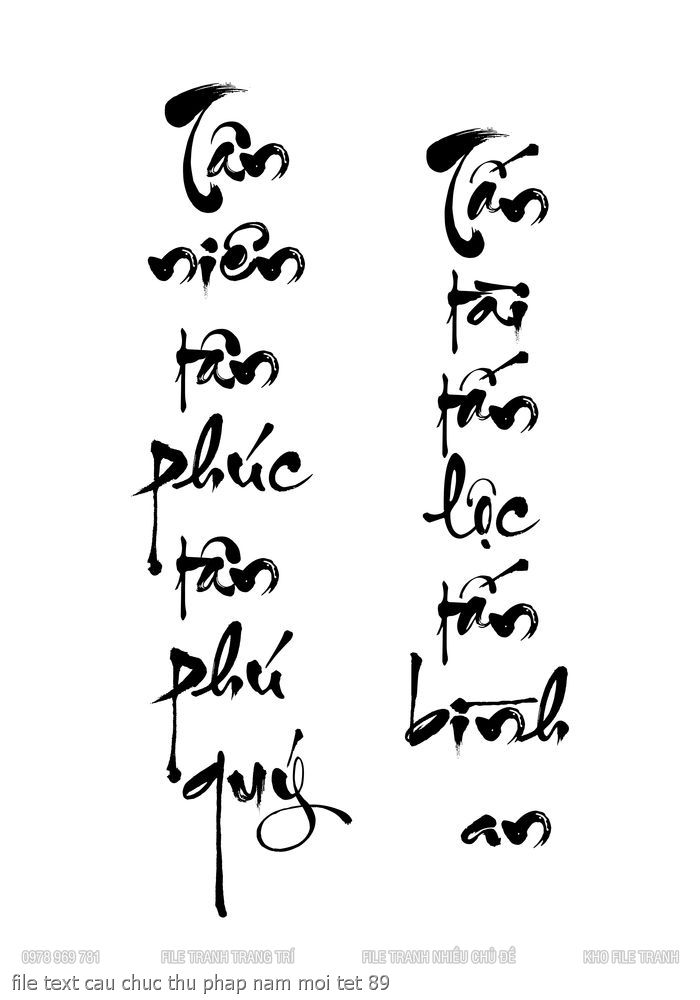 Tân
niên
tân
phúc
tân
phú
quý
Tấn
tài
tấn
lộc
tấn
bình
an
0978 969 781 FILE TRANH TRANG TRÍ FILE TRANH NHIỀU CHỦ ĐỀ KHO FILE TRANH
file text cau chuc thu phap nam moi tet 89